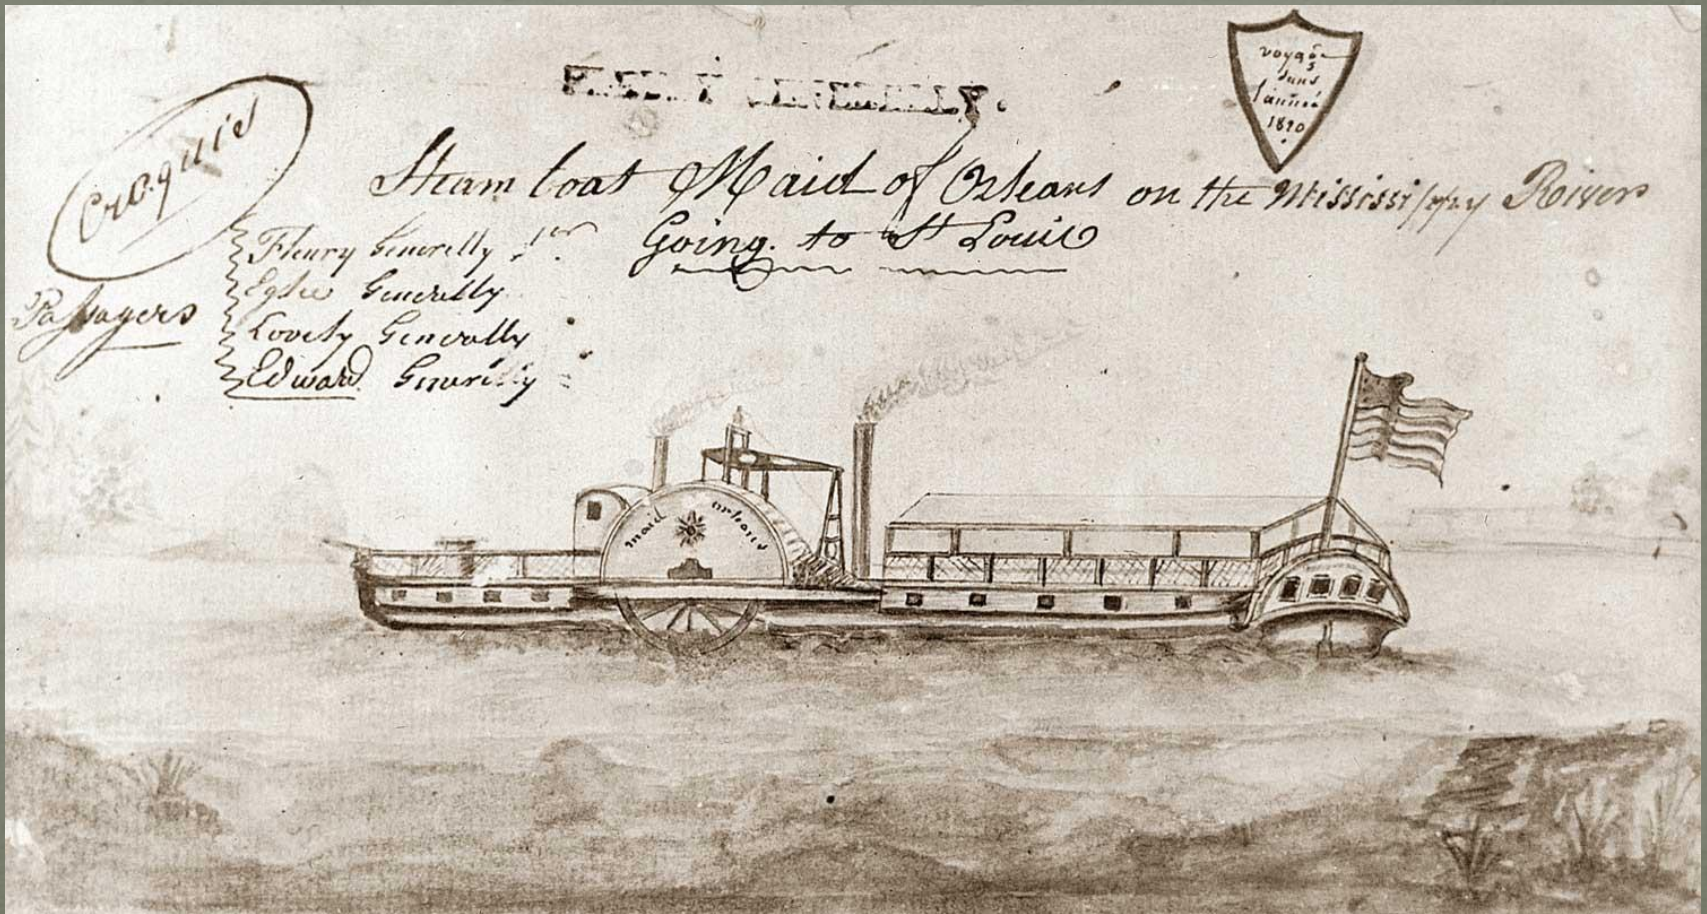 Croquies
voyage
dans
l'année
1820
Steam boat Maid of Orleans on the Mississippy River
Going to St Louis
Passagers
Fleury Generelly
Eglee Generelly
Lovely Generally
Edward Generelly
maid orleans